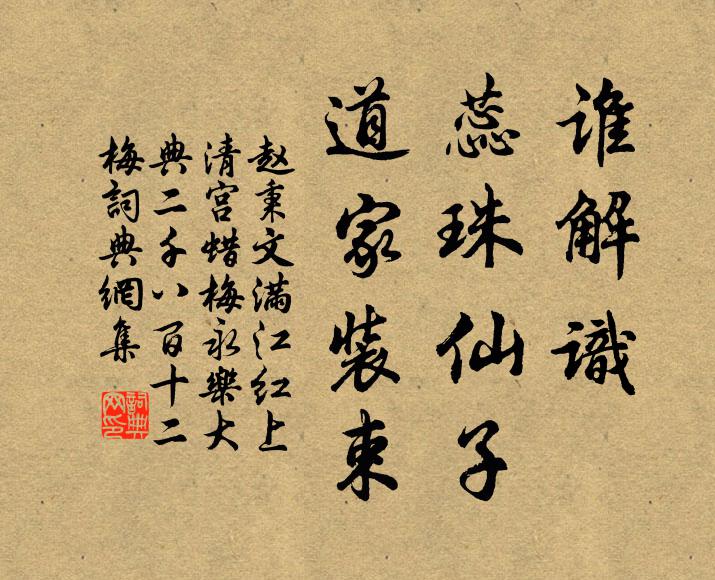 谁解識
蕊珠仙子
道家装束
赵秉文满江红上
清宫蜡梅永樂大
典二千八百十二
梅詞典網集
詞典
网印